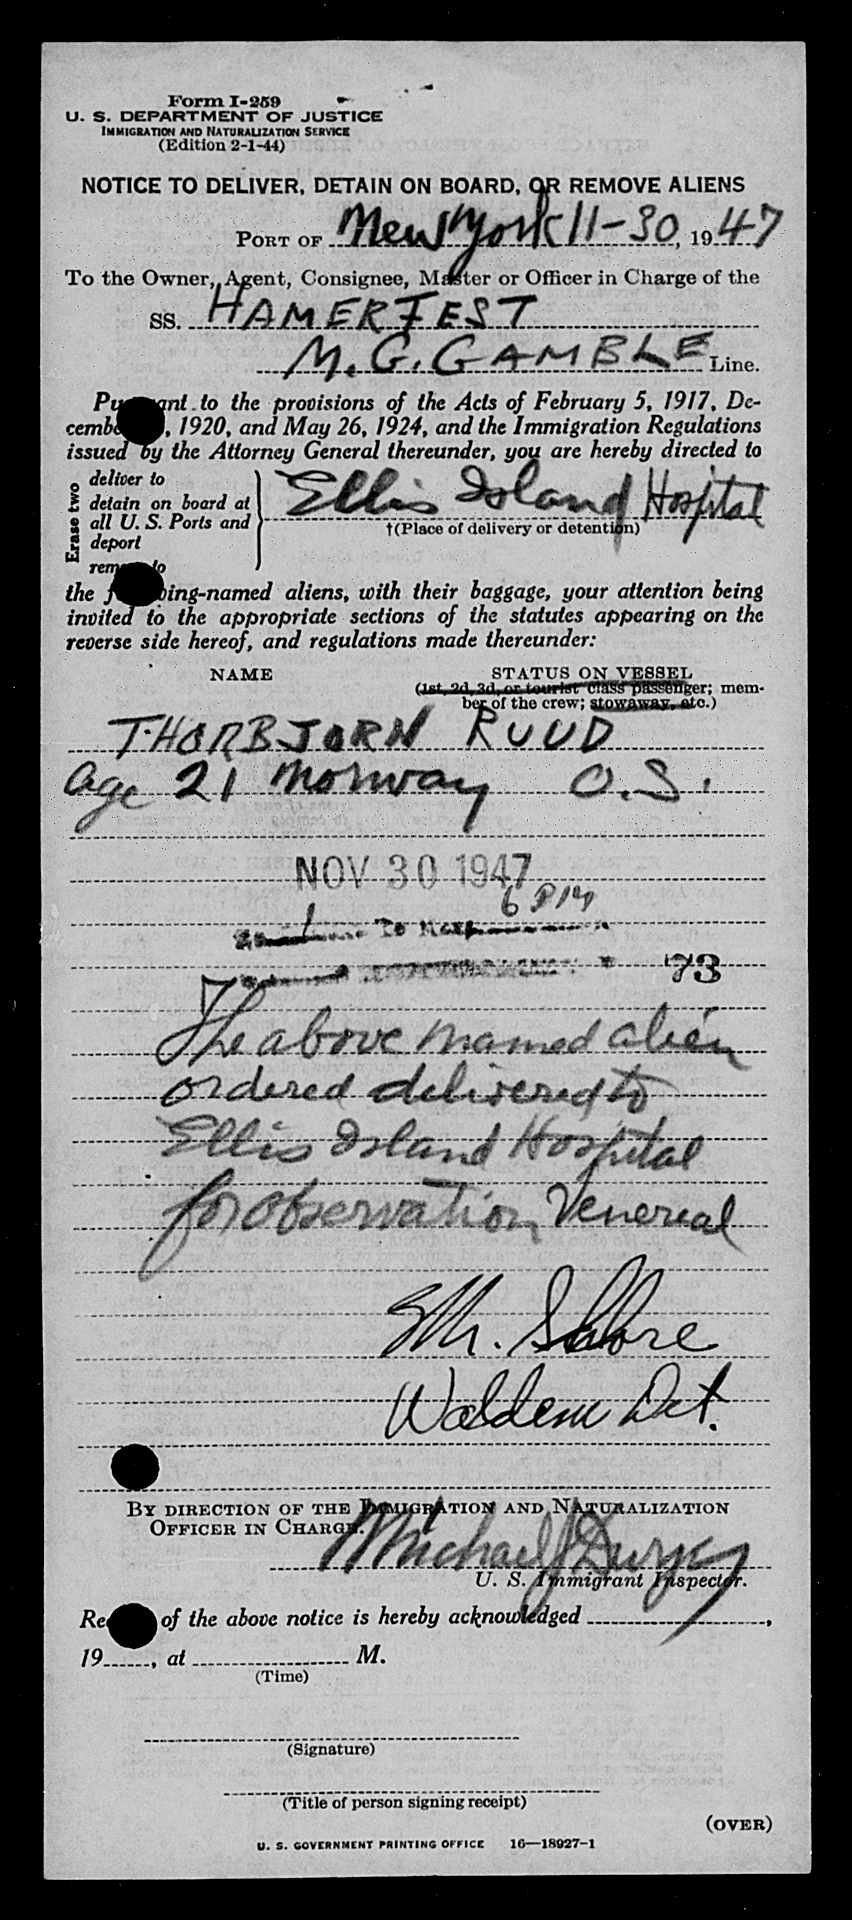 Form I-259
U. S. DEPARTMENT OF JUSTICE
IMMIGRATION AND NATURALIZATION SERVICE
(Edition 2-1-44)
NOTICE TO DELIVER, DETAIN ON BOARD, OR REMOVE ALIENS
PORT OF New York 11-30, 1947
To the Owner, Agent, Consignee, Master or Officer in Charge of the
SS. HAMERFEST
M. G. GAMBLE Line.
Pu ant to the provisions of the Acts of February 5, 1917, De-
cemb , 1920, and May 26, 1924, and the Immigration Regulations
issued by the Attorney General thereunder, you are hereby directed to
Erase two
deliver to
detain on board at
all U. S. Ports and
deport
rem to
Ellis Island Hospital
†(Place of delivery or detention)
the f wing-named aliens, with their baggage, your attention being
invited to the appropriate sections of the statutes appearing on the
reverse side hereof, and regulations made thereunder:
NAME STATUS ON VESSEL
(1st, 2d, 3d, or tourist class passenger; mem-
ber of the crew; stowaway, etc.)
THORBJORN RUUD
age 21 Norway O.S.
NOV 30 1947
6 PM
73
The above named alien
ordered delivered to
Ellis Island Hospital
for observation Venereal
BY DIRECTION OF THE IMMIGRATION AND NATURALIZATION
OFFICER IN CHARGE.
Michael J
U. S. Immigrant Inspector.
Re of the above notice is hereby acknowledged ,
19 , at M.
(Time)
(Signature)
(Title of person signing receipt)
(OVER)
U. S. GOVERNMENT PRINTING OFFICE 16—18927-1